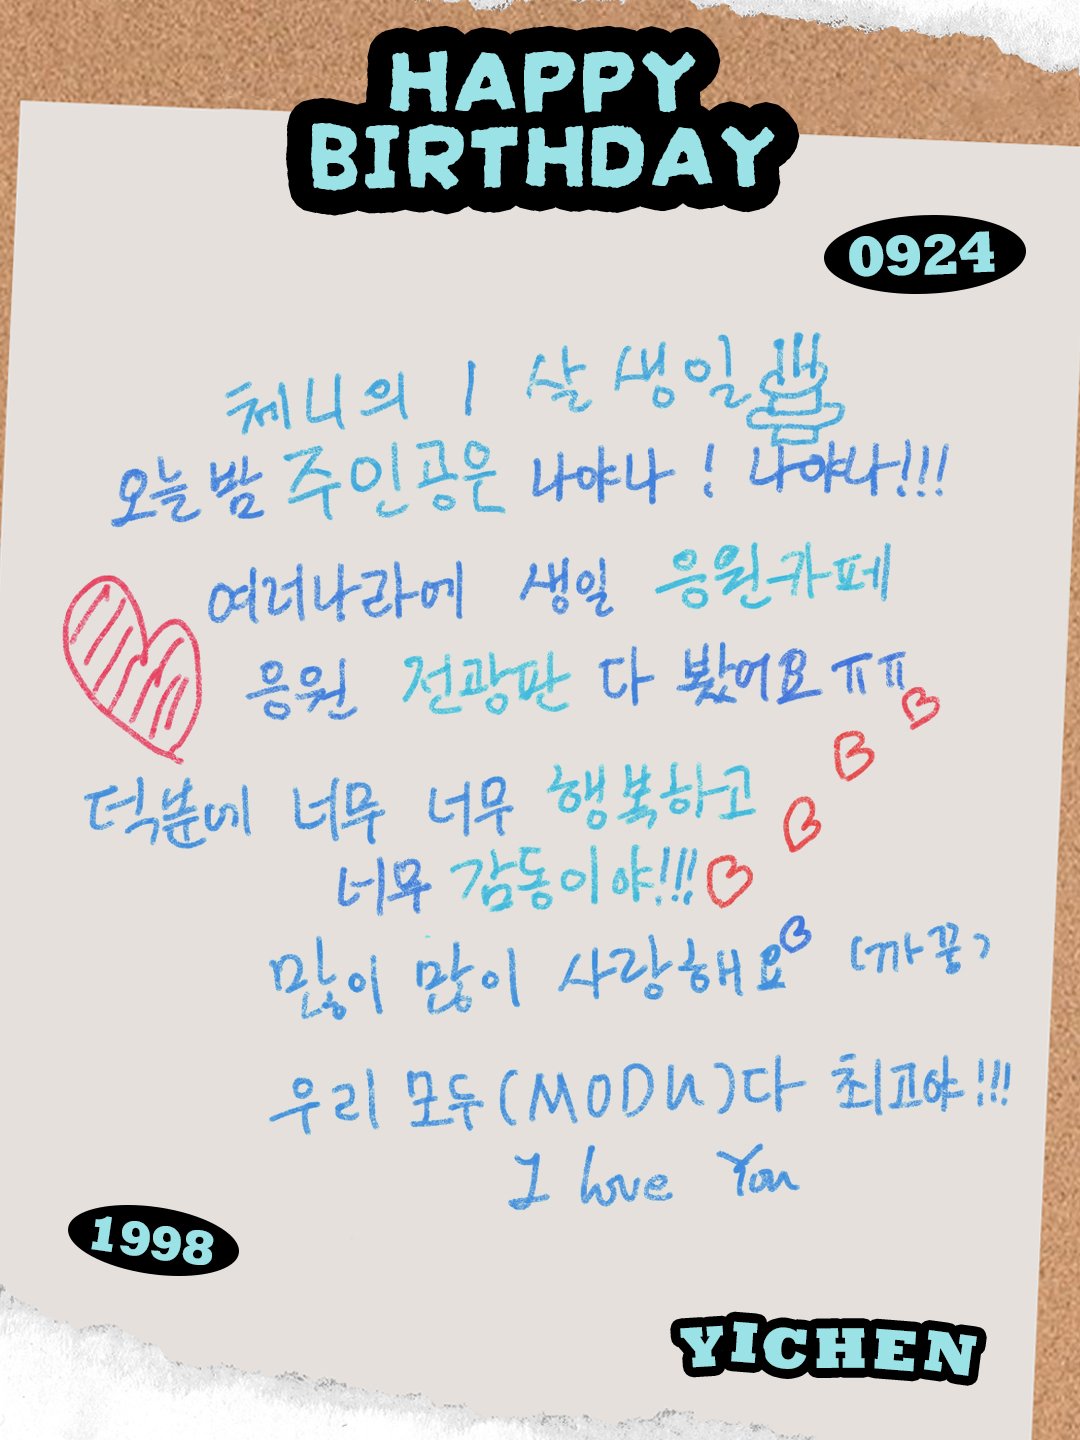 HAPPY
BIRTHDAY
0924
체니의 1 살 생일
오늘 밤 주인공은 나야나 ! 나야나!!!
여러나라에 생일 응원카페
응원 전광판 다 봤어요 ㅠㅠ
덕분에 너무 너무 행복하고
너무 감동이야!!!
많이 많이 사랑해요 (까꿍)
우리 모두(MODU)다 최고야!!!
I love You
1998
YICHEN